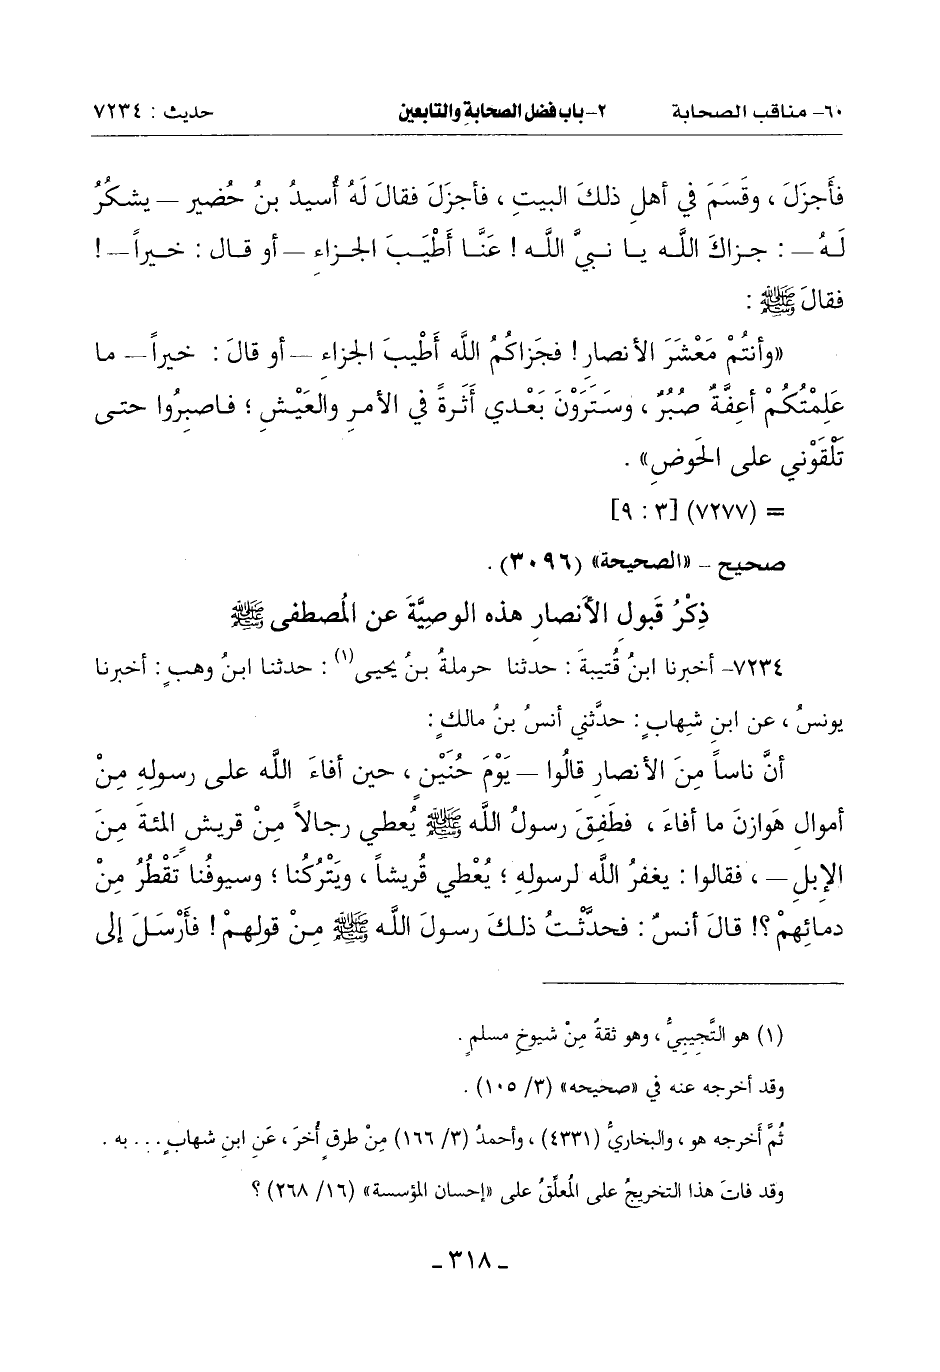 ٦٠- مناقب الصحابة ٢- باب فضل الصحابة والتابعين حديث : ٧٢٣٤
فأَجزَلَ ، وقَسَمَ في أهلِ ذلكَ البيتِ ، فأجزَلَ فقالَ لَهُ أُسيدُ بنُ حُضيرٍ – يشكُرُ
لَهُ – : جزاكَ اللَّه يا نبيَّ اللَّه ! عَنَّا أَطْيَبَ الجزاءِ – أو قال : خيراً – !
فقالَ ﷺ :
«وأنتُمْ مَعْشَرَ الأنصارِ ! فجَزاكُمُ اللَّه أَطْيبَ الجزاءِ – أو قالَ : خيراً – ما
عَلِمْتُكُمْ أعفَّةٌ صُبُرٌ ، وسَتَرَوْنَ بَعْدي أَثَرةً في الأمرِ والعَيْشِ ؛ فاصبِرُوا حتى
تَلْقَوْني على الحَوضِ» .
= (٧٢٧٧) [٣ : ٩]
صحيح – «الصحيحة» (٣٠٩٦) .
ذِكْرُ قَبولِ الأَنصارِ هذه الوصِيَّةَ عن المُصطفى ﷺ
٧٢٣٤– أخبرنا ابنُ قُتيبةَ : حدثنا حرملةُ بنُ يحيى(١) : حدثنا ابنُ وهبٍ : أخبرنا
يونسُ ، عن ابنِ شِهابٍ : حدَّثني أنسُ بنُ مالكٍ :
أنَّ ناساً مِنَ الأنصارِ قالُوا – يَوْمَ حُنَيْنٍ ، حين أفاءَ اللَّه على رسولِهِ مِنْ
أموالِ هَوازنَ ما أفاءَ ، فطَفِقَ رسولُ اللَّه ﷺ يُعطي رجالاً مِنْ قريشٍ المئةَ مِنَ
الإبلِ – ، فقالوا : يغفرُ اللَّه لرسولِهِ ؛ يُعْطي قُريشاً ، ويَتْرُكُنا ؛ وسيوفُنا تَقْطُرُ مِنْ
دمائِهِمْ ؟! قالَ أنسٌ : فحدَّثْتُ ذلكَ رسولَ اللَّه ﷺ مِنْ قولِهِمْ ! فأَرْسَلَ إلى
(١) هو التَّجِيبيُّ ، وهو ثقةٌ مِنْ شيوخِ مسلمٍ .
وقد أخرجه عنه في «صحيحه» (٣/ ١٠٥) .
ثُمَّ أَخرجه هو ، والبخاريُّ (٤٣٣١) ، وأحمدُ (٣/ ١٦٦) مِنْ طرقٍ أُخرَ ، عَنِ ابنِ شهابٍ ... به .
وقد فاتَ هذا التخريجُ على المُعلِّقِ على «إحسان المؤسسة» (١٦/ ٢٦٨) ؟
– ٣١٨ –